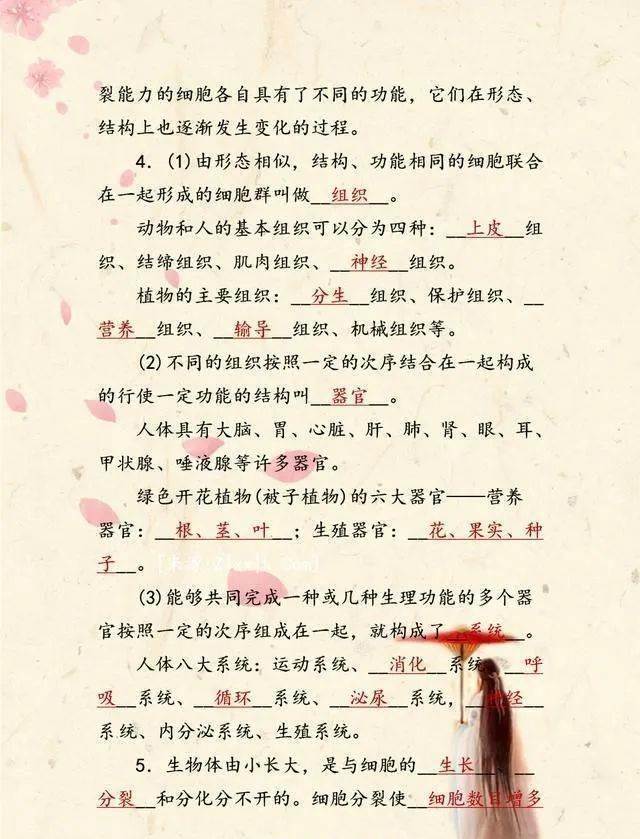 裂能力的细胞各自具有了不同的功能，它们在形态、
结构上也逐渐发生变化的过程。
4．(1)由形态相似，结构、功能相同的细胞联合
在一起形成的细胞群叫做__组织__。
动物和人的基本组织可以分为四种：__上皮__组
织、结缔组织、肌肉组织、__神经__组织。
植物的主要组织：__分生__组织、保护组织、__
营养__组织、__输导__组织、机械组织等。
(2)不同的组织按照一定的次序结合在一起构成
的行使一定功能的结构叫__器官__。
人体具有大脑、胃、心脏、肝、肺、肾、眼、耳、
甲状腺、唾液腺等许多器官。
绿色开花植物(被子植物)的六大器官——营养
器官：__根、茎、叶__；生殖器官：__花、果实、种
子__。
(3)能够共同完成一种或几种生理功能的多个器
官按照一定的次序组成在一起，就构成了__系统__。
人体八大系统：运动系统、__消化__系统、__呼
吸__系统、__循环__系统、__泌尿__系统，__神经__
系统、内分泌系统、生殖系统。
5．生物体由小长大，是与细胞的__生长__、__
分裂__和分化分不开的。细胞分裂使__细胞数目增多